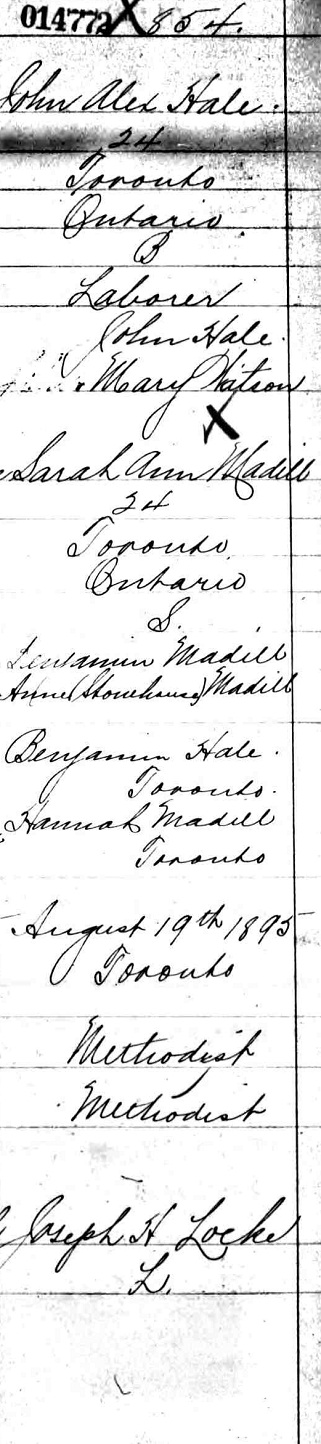 014772 X 854.
John Alex Hale.
24
Toronto
Ontario
B
Laborer
John Hale.
Mary Watson
X
Sarah Ann Madill
24
Toronto
Ontario
S.
Benjamin Madill
Anne (Stonehouse) Madill
Benjamin Hale.
Toronto.
Hannah Madill
Toronto
August 19th 1895
Toronto
Methodist
Methodist
Joseph H Locke
L.